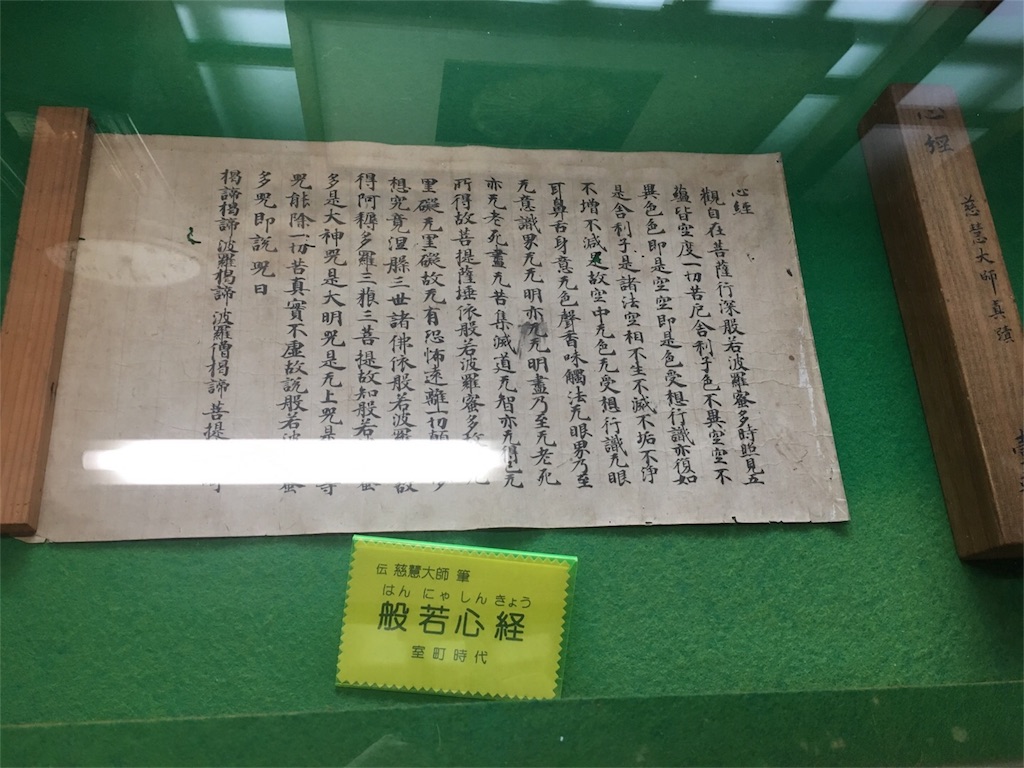 心経
慈慧大師真蹟
心経
觀自在菩薩行深般若波羅蜜多時照見五
蘊皆空度一切苦厄舎利子色不異空空不
異色色即是空空即是色受想行識亦復如
是舎利子是諸法空相不生不滅不垢不浄
不増不減是故空中无色无受想行識无眼
耳鼻舌身意无色聲香味觸法无眼界乃至
无意識界无无明亦无无明盡乃至无老死
亦无老死盡无苦集滅道无智亦无得无
所得故菩提薩埵依般若波羅蜜多
罣礙无罣礙故无有恐怖遠離一切
想究竟涅槃三世諸佛依般若波羅
得阿耨多羅三藐三菩提故知般若
多是大神咒是大明咒是无上咒是
咒能除一切苦真實不虚故説般若波
多咒即説咒曰
揭諦揭諦波羅揭諦波羅僧揭諦菩提
伝 慈慧大師 筆
はん にゃ しん きょう
般若心経
室町時代